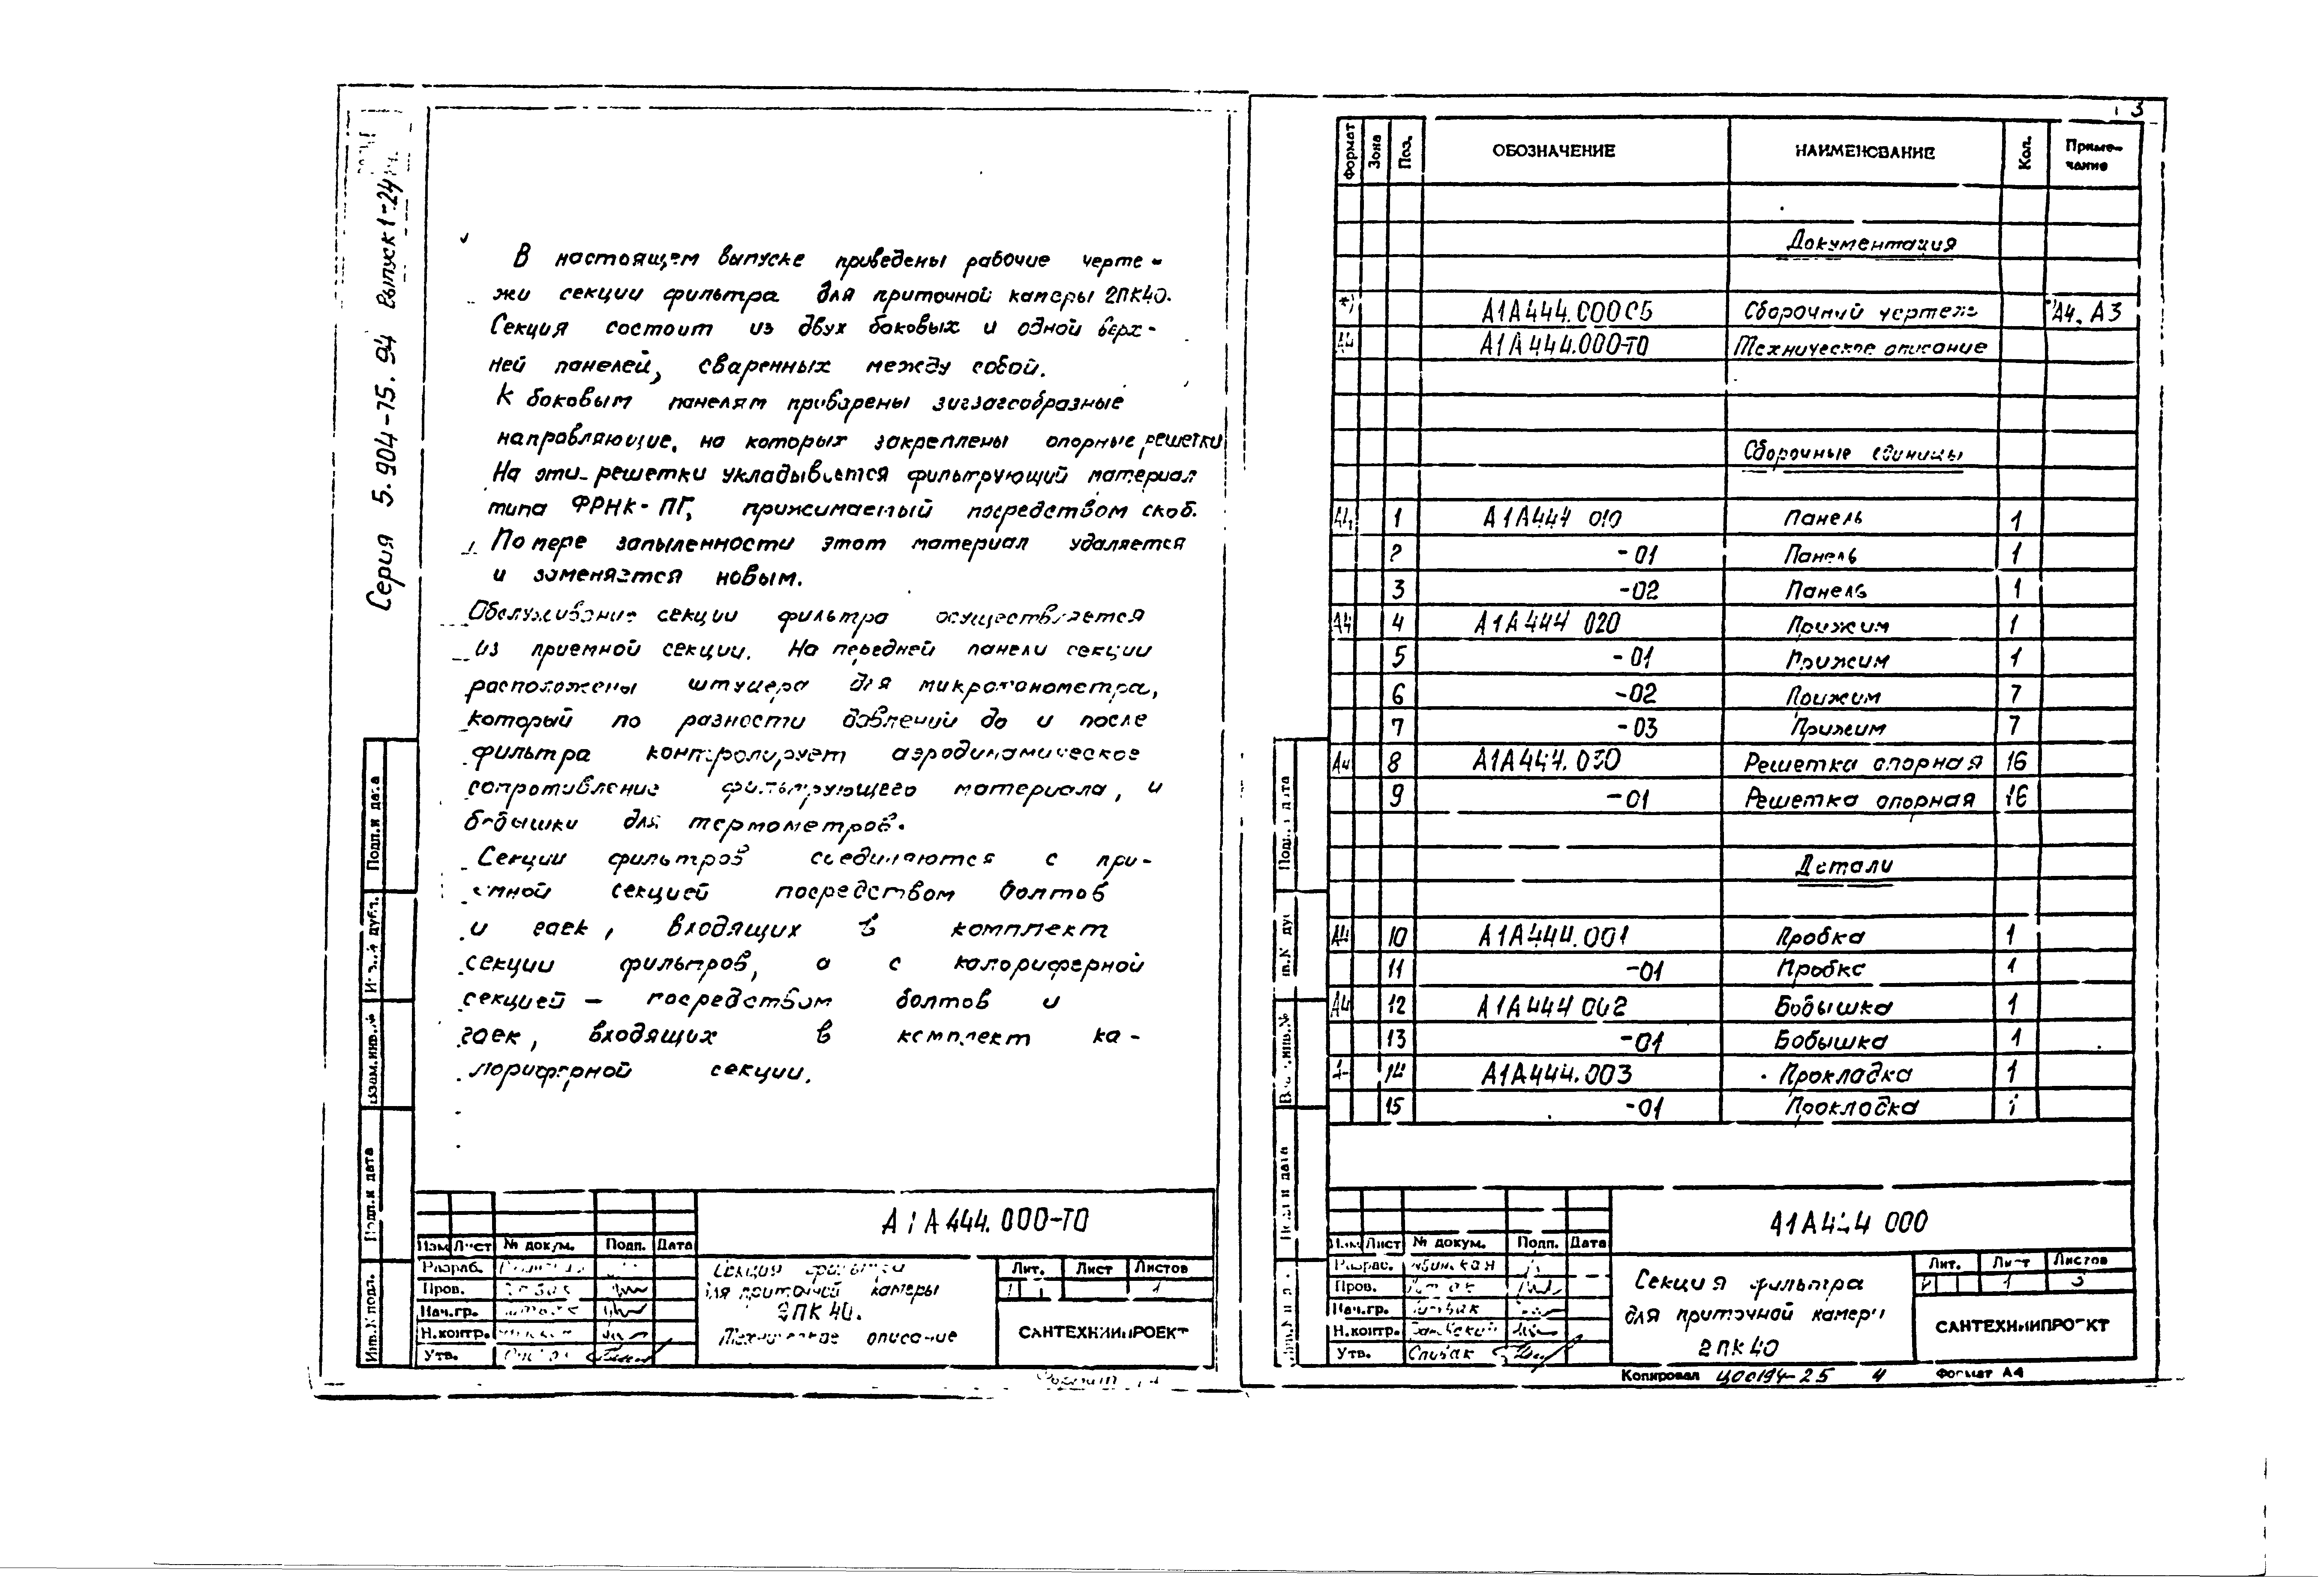 Серия 5.904-75.94 Выпуск 1-24
В настоящем выпуске приведены рабочие черте-
жи секции фильтра для приточной камеры 2ПК40.
Секция состоит из двух боковых и одной верх-
ней панелей, сваренных между собой.
К боковым панелям приварены зигзагообразные
направляющие, на которых закреплены опорные решетки
На эти решетки укладывается фильтрующий материал
типа ФРНК-ПГ, прижимаемый посредством скоб.
По мере запыленности этот материал удаляется
и заменяется новым.
Обслуживание секции фильтра осуществляется
из приемной секции. На передней панели секции
расположены штуцера для микроманометра,
который по разности давлений до и после
фильтра контролирует аэродинамическое
сопротивление фильтрующего материала, и
бобышки для термометров.
Секции фильтров соединяются с при-
емной секцией посредством болтов
и гаек, входящих в комплект
секции фильтров, а с калориферной
секцией - посредством болтов и
гаек, входящих в комплект ка-
лориферной секции.
Подп.и дата
Взам.инв.№
Подп.и дата
Инв.№ подл.
А1А444.000-ТО
Изм Лист № докум. Подп. Дата
Разраб.
Пров.
Нач.гр.
Н.контр.
Утв.
Секция фильтра
для приточной камеры
2ПК40.
Техническое описание
Лит. Лист Листов
1
САНТЕХНИИПРОЕКТ
3
Формат Зона Поз. ОБОЗНАЧЕНИЕ НАИМЕНОВАНИЕ Кол. Приме-
чание
Документация
*) А1А444.000СБ Сборочный чертеж *)А4, А3
А4 А1А444.000-ТО Техническое описание
Сборочные единицы
А4 1 А1А444 010 Панель 1
2 -01 Панель 1
3 -02 Панель 1
А4 4 А1А444 020 Прижим 1
5 -01 Прижим 1
6 -02 Прижим 7
7 -03 Прижим 7
А4 8 А1А444.030 Решетка опорная 16
9 -01 Решетка опорная 16
Детали
А4 10 А1А444.001 Пробка 1
11 -01 Пробка 1
А4 12 А1А444 002 Бобышка 1
13 -01 Бобышка 1
14 А1А444.003 Прокладка 1
15 -01 Прокладка 1
А1А444 000
Изм Лист № докум. Подп. Дата
Разраб.
Пров.
Нач.гр. Спивак
Н.контр.
Утв. Спивак
Секция фильтра
для приточной камеры
2ПК40
Лит. Лист Листов
1 3
САНТЕХНИИПРОЕКТ
Копировал Ц00194-25 4 Формат А4